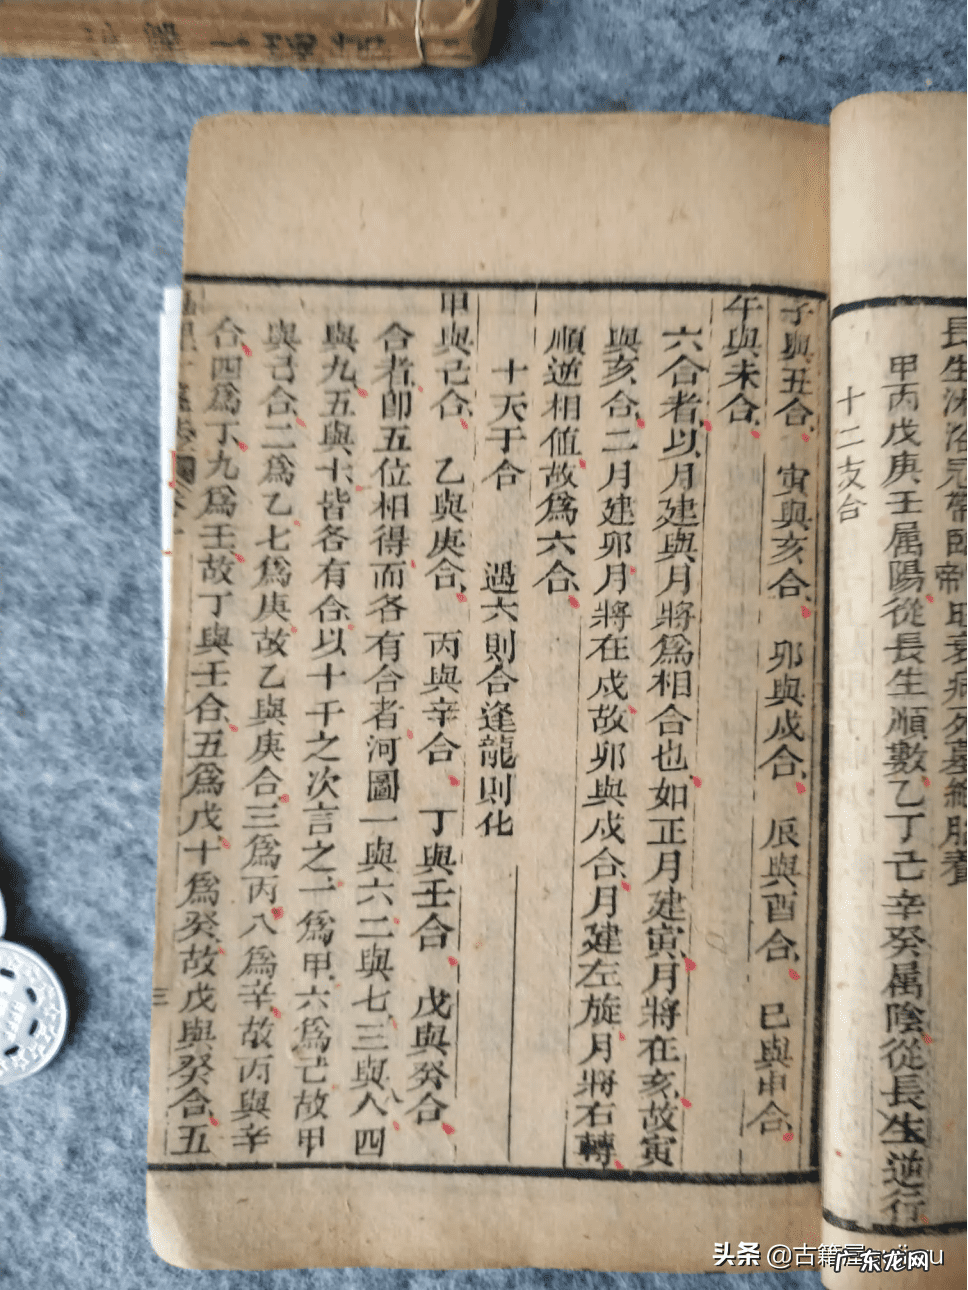 長生沐浴冠帶臨帝旺衰病死墓絕胎養
甲丙戊庚壬属陽從長生順數乙丁己辛癸属陰從長生逆行
十二支合
子與丑合 寅與亥合 卯與戌合 辰與酉合 巳與申合
午與未合
六合者以月建與月將爲相合也如正月建寅月將在亥故寅
與亥合二月建卯月將在戌故卯與戌合月建左旋月將右轉
順逆相值故爲六合
十天干合 遇六則合逢龍則化
甲與己合 乙與庚合 丙與辛合 丁與壬合 戊與癸合
合者卽五位相得而各有合者河圖一與六二與七三與八四
與九五與十皆各有合以十干之次言之一爲甲六爲己故甲
與己合二爲乙七爲庚故乙與庚合三爲丙八爲辛故丙與辛
合四爲丁九爲壬故丁與壬合五爲戊十爲癸故戊與癸合五
三
头条 @古籍屋
广东龙网